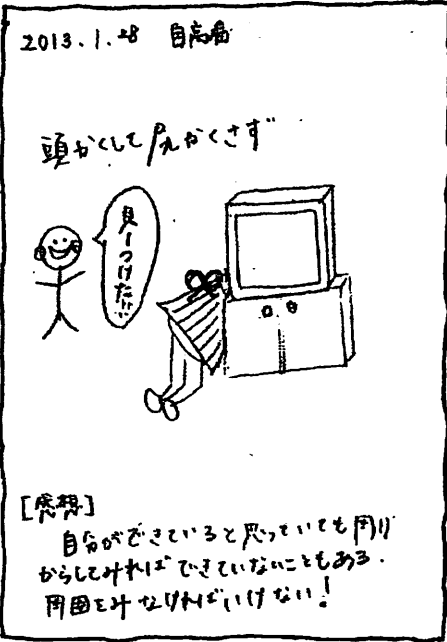 2013.1.28 自高店
頭かくして尻かくさず
見ーつけた!!
[感想]
自分ができていると思っていても周り
からしてみればできていないこともある.
周囲をみなければいけない!